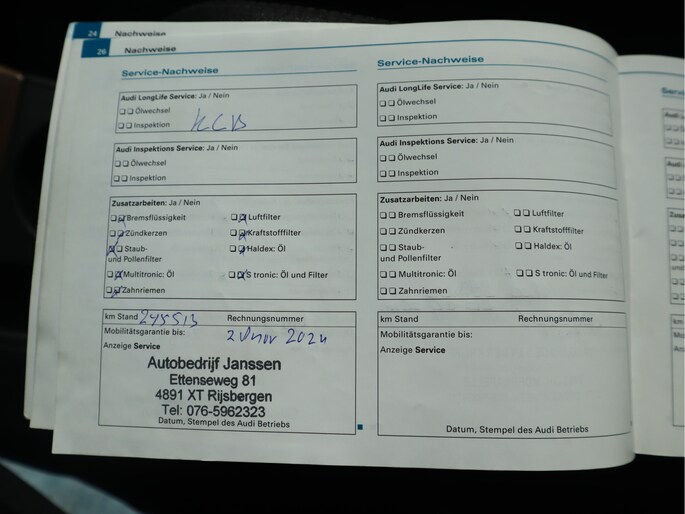 24 Nachweise
26 Nachweise
Service-Nachweise
Audi LongLife Service: Ja / Nein
Ölwechsel
Inspektion
Audi Inspektions Service: Ja / Nein
Ölwechsel
Inspektion
Zusatzarbeiten: Ja / Nein
Bremsflüssigkeit Luftfilter
Zündkerzen Kraftstofffilter
Staub- Haldex: Öl
und Pollenfilter
Multitronic: Öl S tronic: Öl und Filter
Zahnriemen
km Stand 245513 Rechnungsnummer
Mobilitätsgarantie bis: nov 2024
Anzeige Service
Autobedrijf Janssen
Ettenseweg 81
4891 XT Rijsbergen
Tel: 076-5962323
Datum, Stempel des Audi Betriebs
Service-Nachweise
Audi LongLife Service: Ja / Nein
Ölwechsel
Inspektion
Audi Inspektions Service: Ja / Nein
Ölwechsel
Inspektion
Zusatzarbeiten: Ja / Nein
Bremsflüssigkeit Luftfilter
Zündkerzen Kraftstofffilter
Staub- Haldex: Öl
und Pollenfilter
Multitronic: Öl S tronic: Öl und Filter
Zahnriemen
km Stand Rechnungsnummer
Mobilitätsgarantie bis:
Anzeige Service
Datum, Stempel des Audi Betriebs